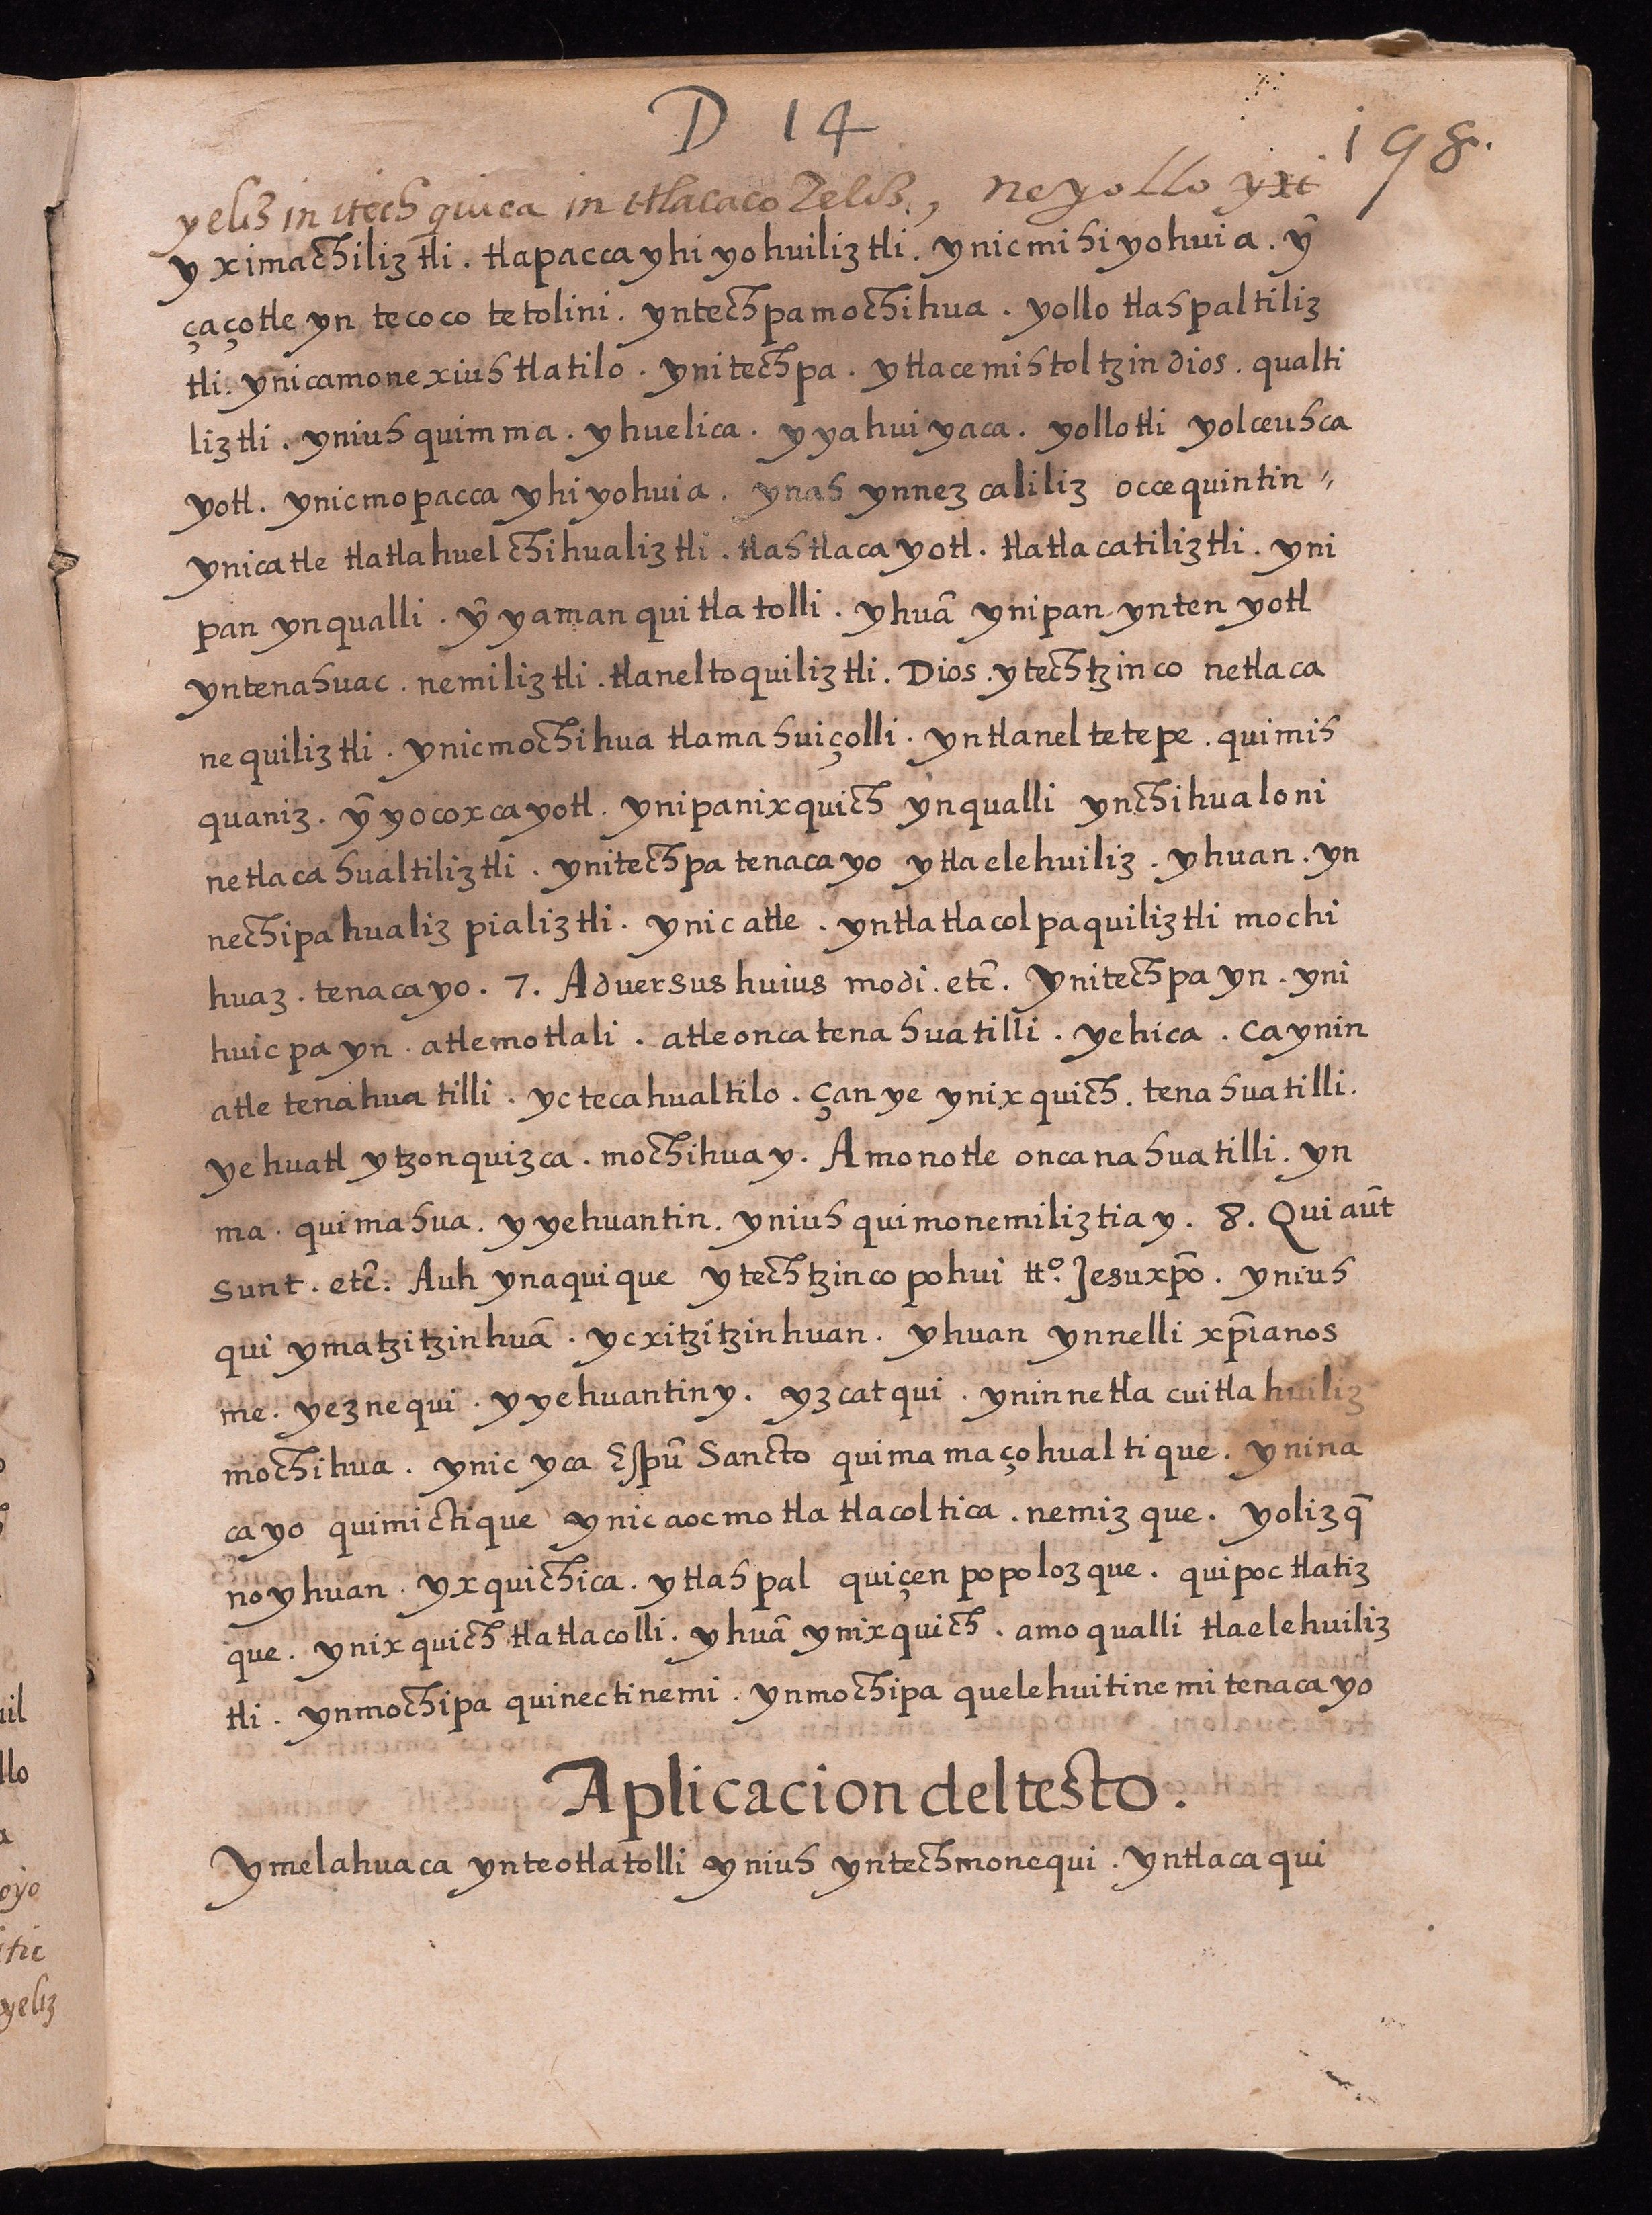 D 14
198.
yeliz in itech quica in itlacaco Zeliz, neyollo yxi
yximachiliztli. tlapaccayhiyohuiliztli. ynicmihiyohuia. yn̄
çaçotle yn tecoco tetolini. yntechpamochihua. yollo tlahpaltiliz
tli. ynicamonexiuhtlatilo. ynitechpa. ytlacemihtoltzin dios. qualti
liztli. yniuhquimma. yhuelica. yyahuiyaca. yollotli yolceuhca
yotl. ynicmopacca yhiyohuia. ynah ynnezcaliliz occequintin〃
ynicatle tlatlahuelchihualiztli. tlahtlacayotl. tlatlacatiliztli. yni
pan ynqualli. ȳ yamanqui tlatolli. yhuā ynipan yntenyotl
yntenahuac. nemiliztli. tlaneltoquiliztli. Dios. ytechtzinco netlaca
nequiliztli. ynicmochihua tlamahuiçolli. yntlaneltetepe. quimih
quaniz. ȳ yocoxcayotl. ynipanixquich ynqualli ynchihualoni
netlacahualtiliztli. ynitechpa tenacayo ytlaelehuiliz. yhuan. yn
nechipahualiz pializtli. ynic atle. yntlatlacolpaquiliztli mochi
huaz. tenacayo. 7. Aduersus huius modi. etc̄. ynitechpa yn. yni
huicpa yn. atlemotlali. atleoncatenahuatilli. yehica. Caynin
atle tenahuatilli. yctecahualtilo. çan ye ynixquich. tenahuatilli.
yehuatl ytzonquizca. mochihuay. Amonotle oncanahuatilli. yn
ma. quimahua. yyehuantin. yniuhquimonemiliztiay. 8. Qui aut̄
sunt. etc̄. Auh ynaquique ytechtzinco pohui tto. Jesuxp̄o. yniuh
qui ymatzitzinhuā. ycxitzitzinhuan. yhuan ynnelli xp̄ianos
me. yeznequi. yyehuantiny. yzcatqui. yninnetlacuitlahuiliz
mochihua. ynic yca Espū Sancto quimamaçohualtique. ynina
cayo quimictique ynicaocmo tlatlacoltica. nemizque. yolizq̄
noyhuan. yxquichica. ytlahpal quiçenpopolozque. quipoctlatiz
que. ynixquich tlatlacolli. yhuā ynixquich. amoqualli tlaelehuiliz
tli. ynmochipa quinectinemi. ynmochipa quelehuitinemi tenacayo
Aplicacion deltesto.
Ymelahuaca ynteotlatolli yniuh yntechmonequi. yntlacaqui